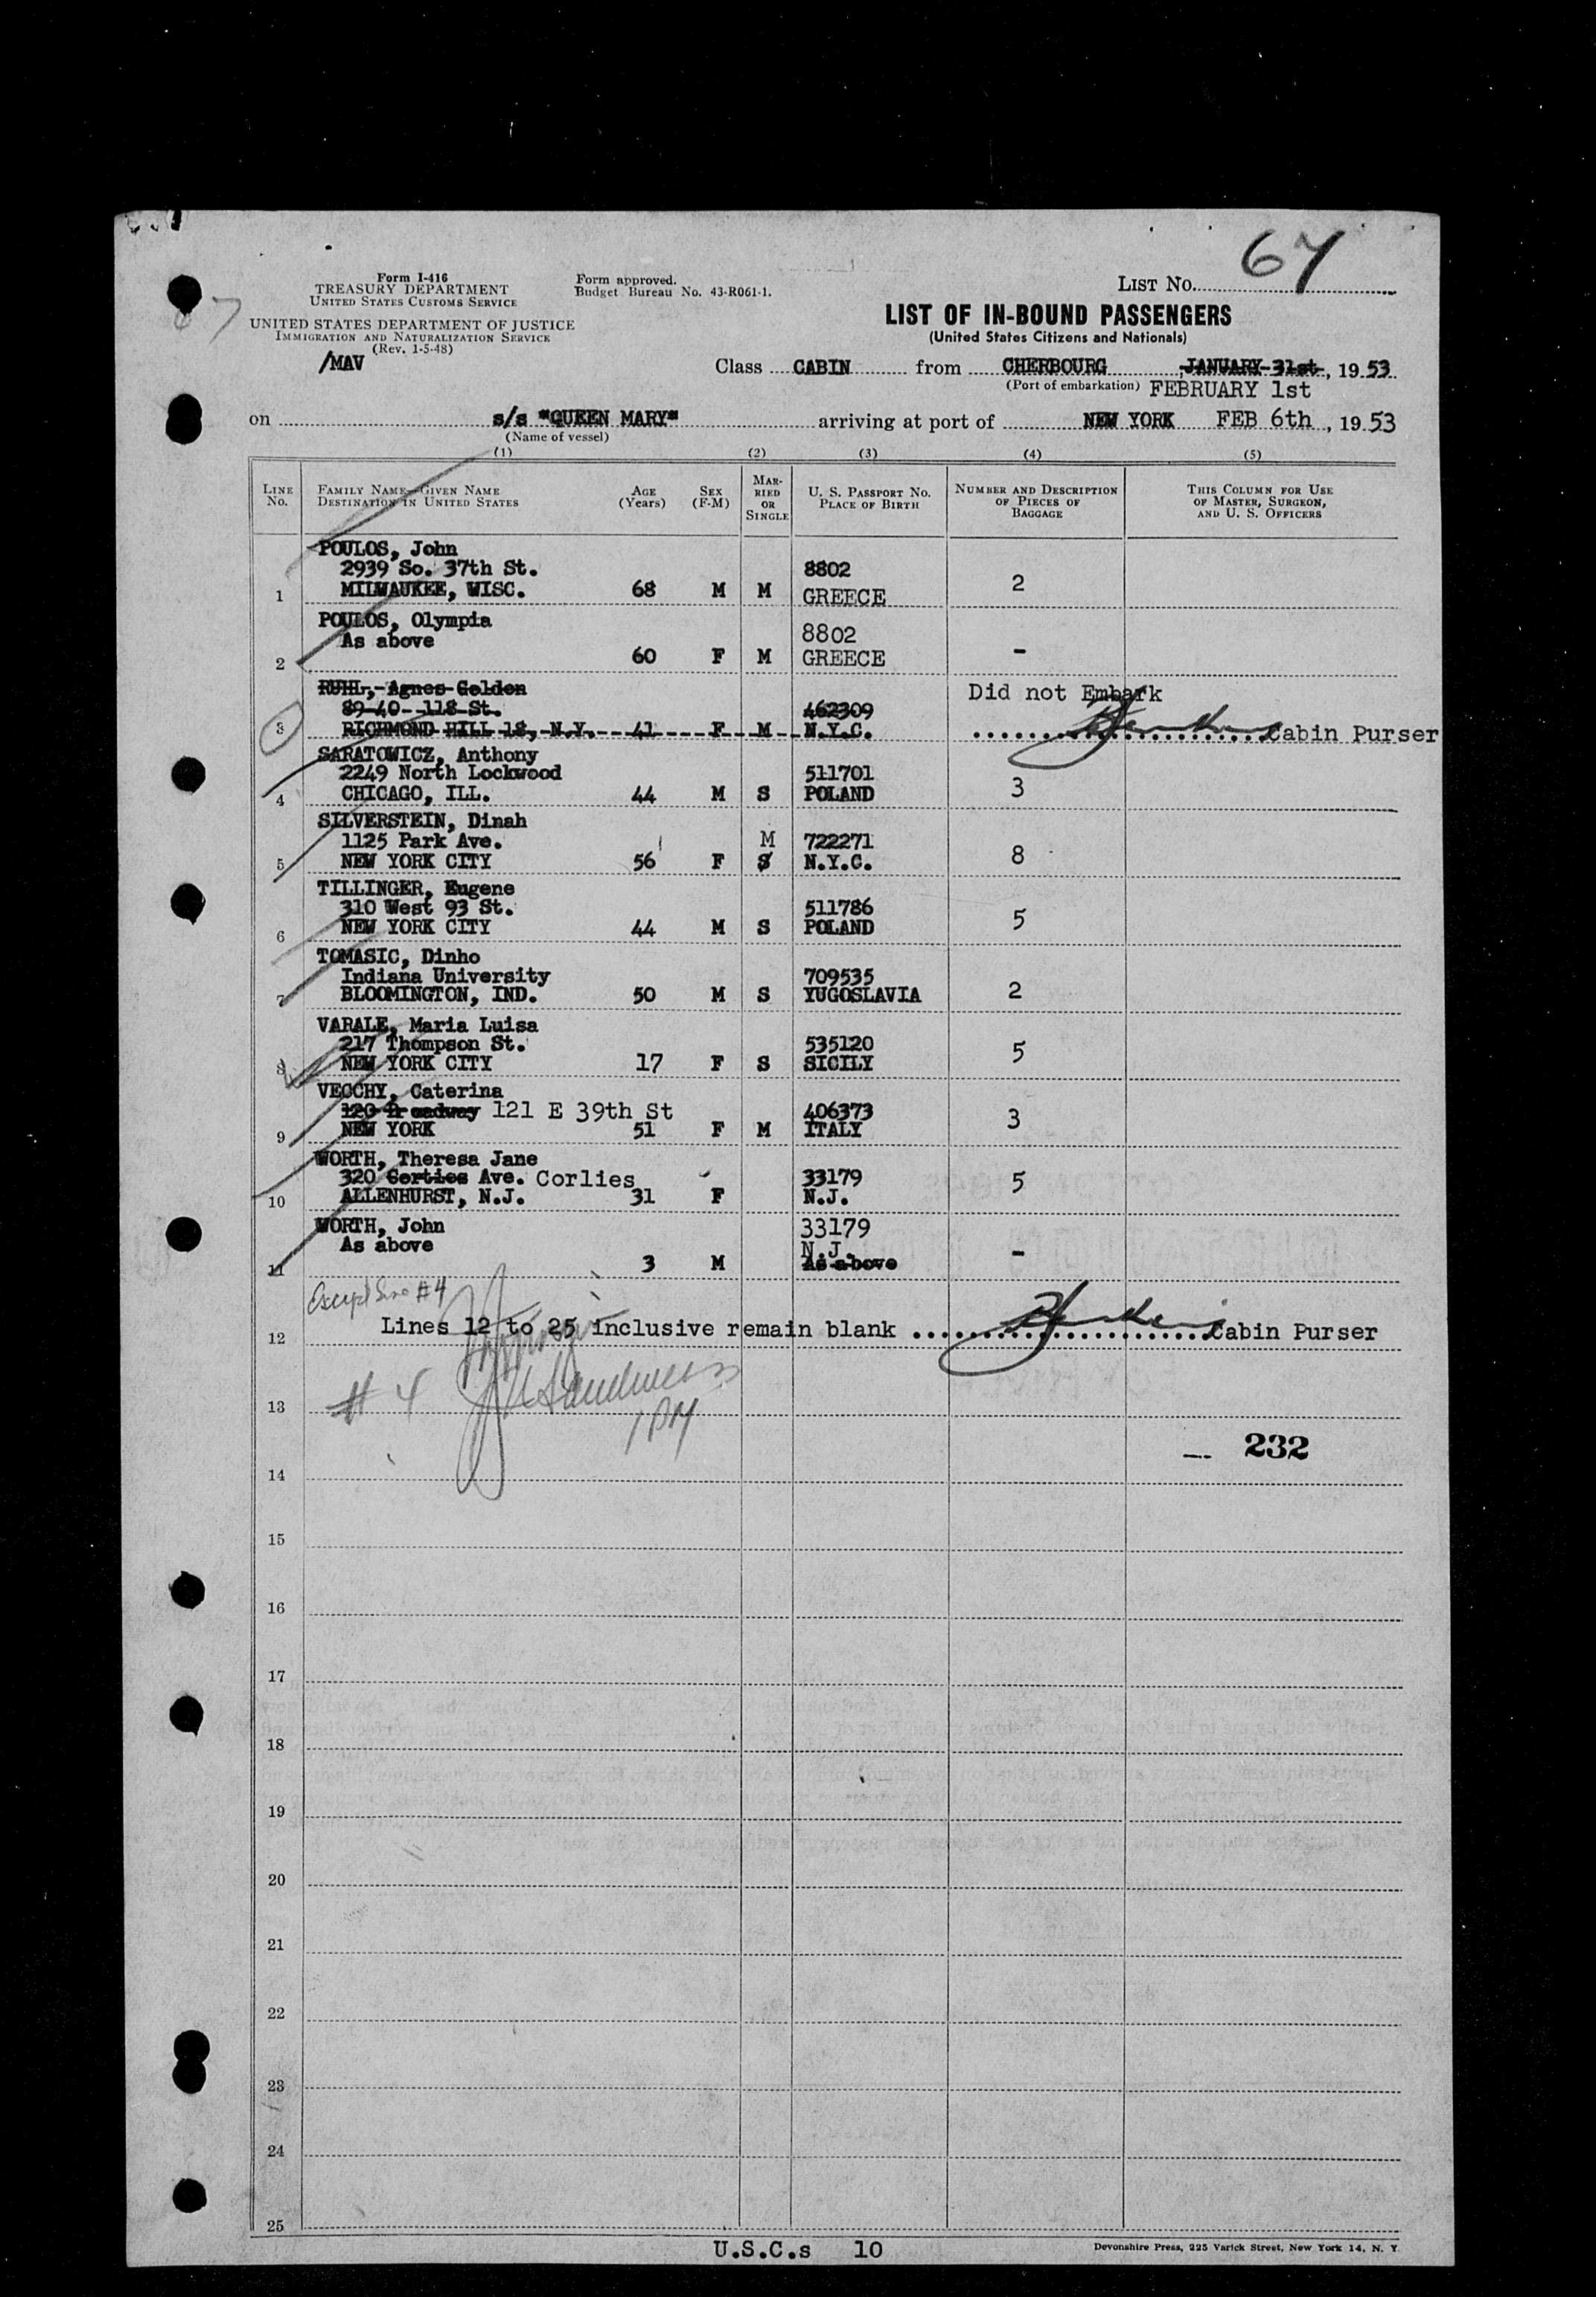 67
Form I-416
TREASURY DEPARTMENT
UNITED STATES CUSTOMS SERVICE
UNITED STATES DEPARTMENT OF JUSTICE
IMMIGRATION AND NATURALIZATION SERVICE
(Rev. 1-5-48)
/MAV
Form approved.
Budget Bureau No. 43-R061-1.
LIST NO.
LIST OF IN-BOUND PASSENGERS
(United States Citizens and Nationals)
Class CABIN from CHERBOURG, JANUARY 31st, 1953
(Port of embarkation) FEBRUARY 1st
on s/s "QUEEN MARY" arriving at port of NEW YORK FEB 6th, 1953
(Name of vessel)
(1) (2) (3) (4) (5)
LINE NO. FAMILY NAME—GIVEN NAME DESTINATION IN UNITED STATES AGE (Years) SEX (F-M) MARRIED OR SINGLE U. S. PASSPORT NO. PLACE OF BIRTH NUMBER AND DESCRIPTION OF PIECES OF BAGGAGE THIS COLUMN FOR USE OF MASTER, SURGEON, AND U. S. OFFICERS
POULOS, John
2939 So. 37th St. 8802
1 MILWAUKEE, WISC. 68 M M GREECE 2
POULOS, Olympia
As above 8802
2 60 F M GREECE -
RUHL, Agnes Golden Did not Embark
89-40 118 St. 462309
3 RICHMOND HILL 18, N.Y. 41 F M N.Y.C. Cabin Purser
SARATOWICZ, Anthony
2249 North Lockwood 511701
4 CHICAGO, ILL. 44 M S POLAND 3
SILVERSTEIN, Dinah
1125 Park Ave. M 722271
5 NEW YORK CITY 56 F S N.Y.C. 8
TILLINGER, Eugene
310 West 93 St. 511786
6 NEW YORK CITY 44 M S POLAND 5
TOMASIC, Dinho
Indiana University 709535
7 BLOOMINGTON, IND. 50 M S YUGOSLAVIA 2
VARALE, Maria Luisa
217 Thompson St. 535120
8 NEW YORK CITY 17 F S SICILY 5
VECCHY, Caterina
120 Broadway 121 E 39th St 406373
9 NEW YORK 51 F M ITALY 3
WORTH, Theresa Jane
320 Corties Ave. Corlies 33179
10 ALLENHURST, N.J. 31 F N.J. 5
WORTH, John 33179
As above N.J.
11 3 M As above -
Except line #4
12 Lines 12 to 25 inclusive remain blank Cabin Purser
# 4
1 PM
13
232
14
15
16
17
18
19
20
21
22
23
24
25
U.S.C.s 10
Devonshire Press, 225 Varick Street, New York 14, N. Y.